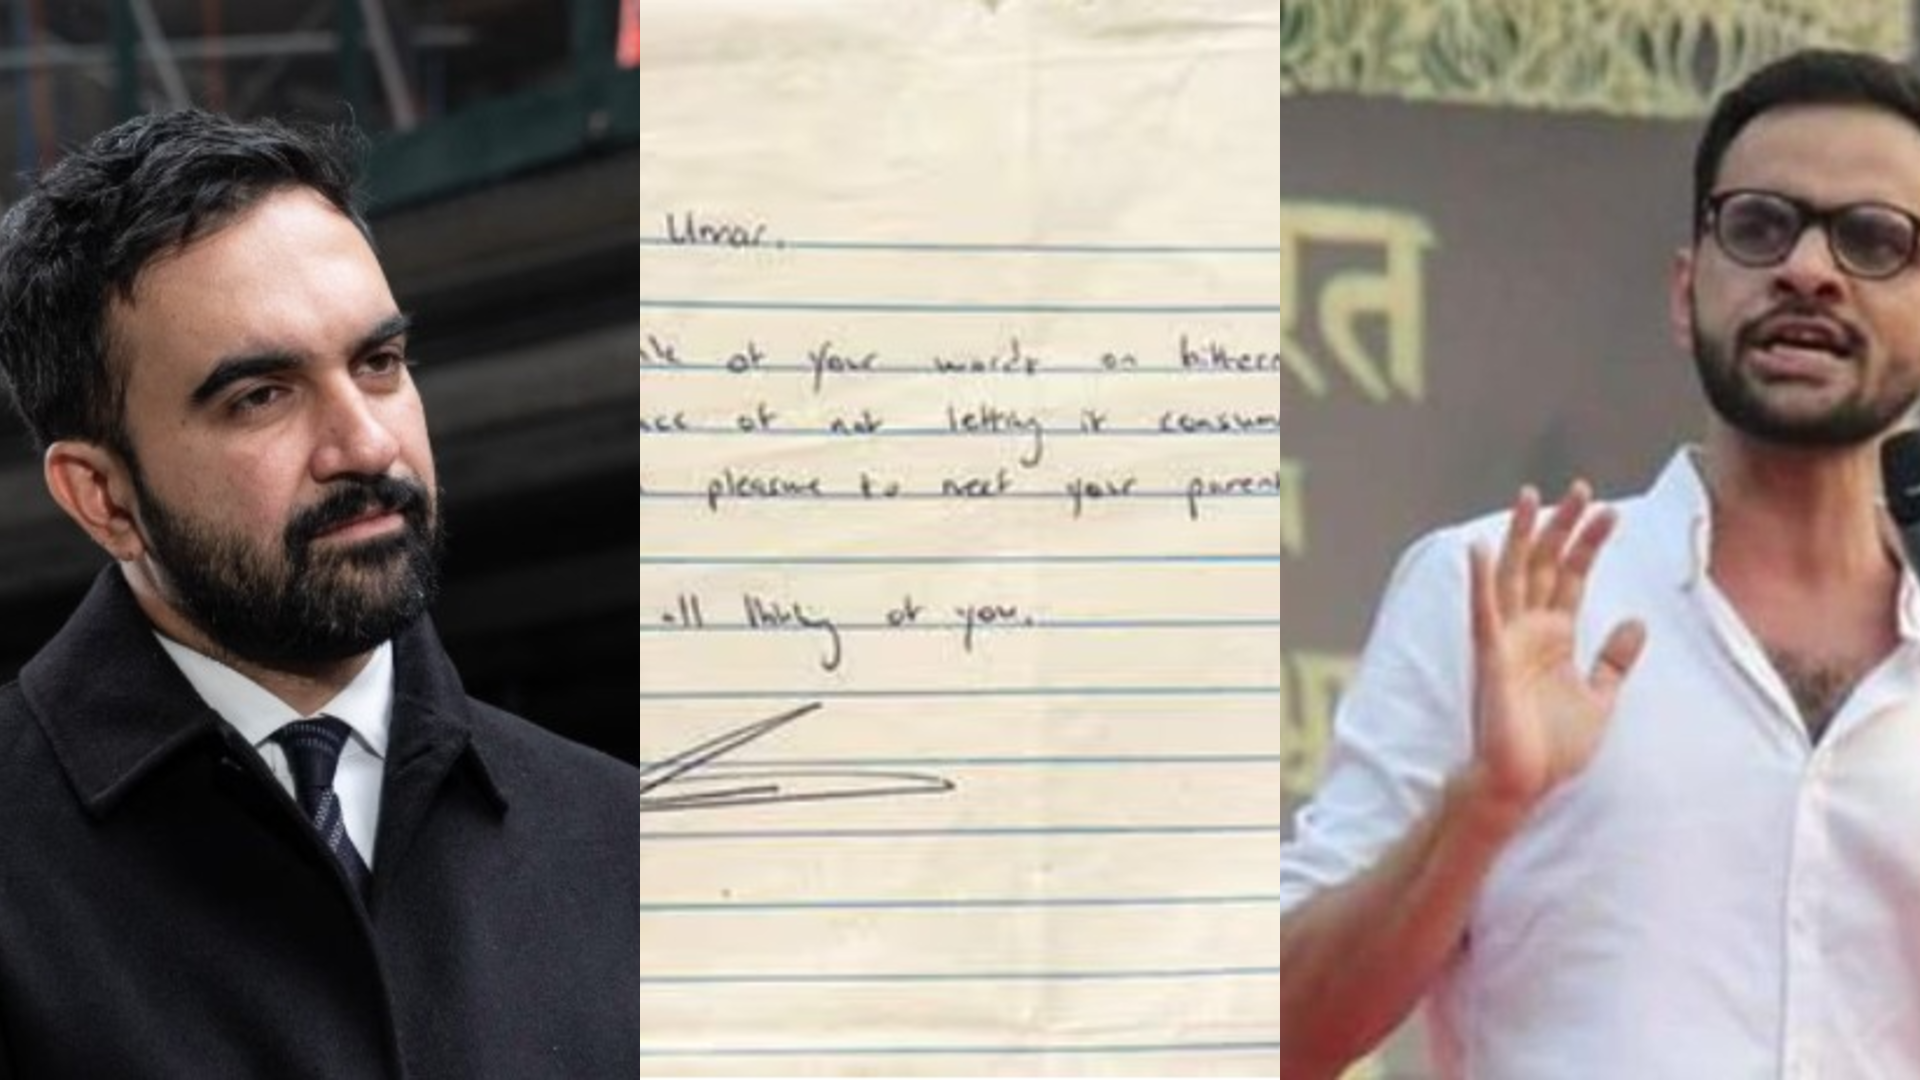 Umar,
of your words on bittern
of not letting it consum
pleasure to meet your parent
all thinking of you.
रत